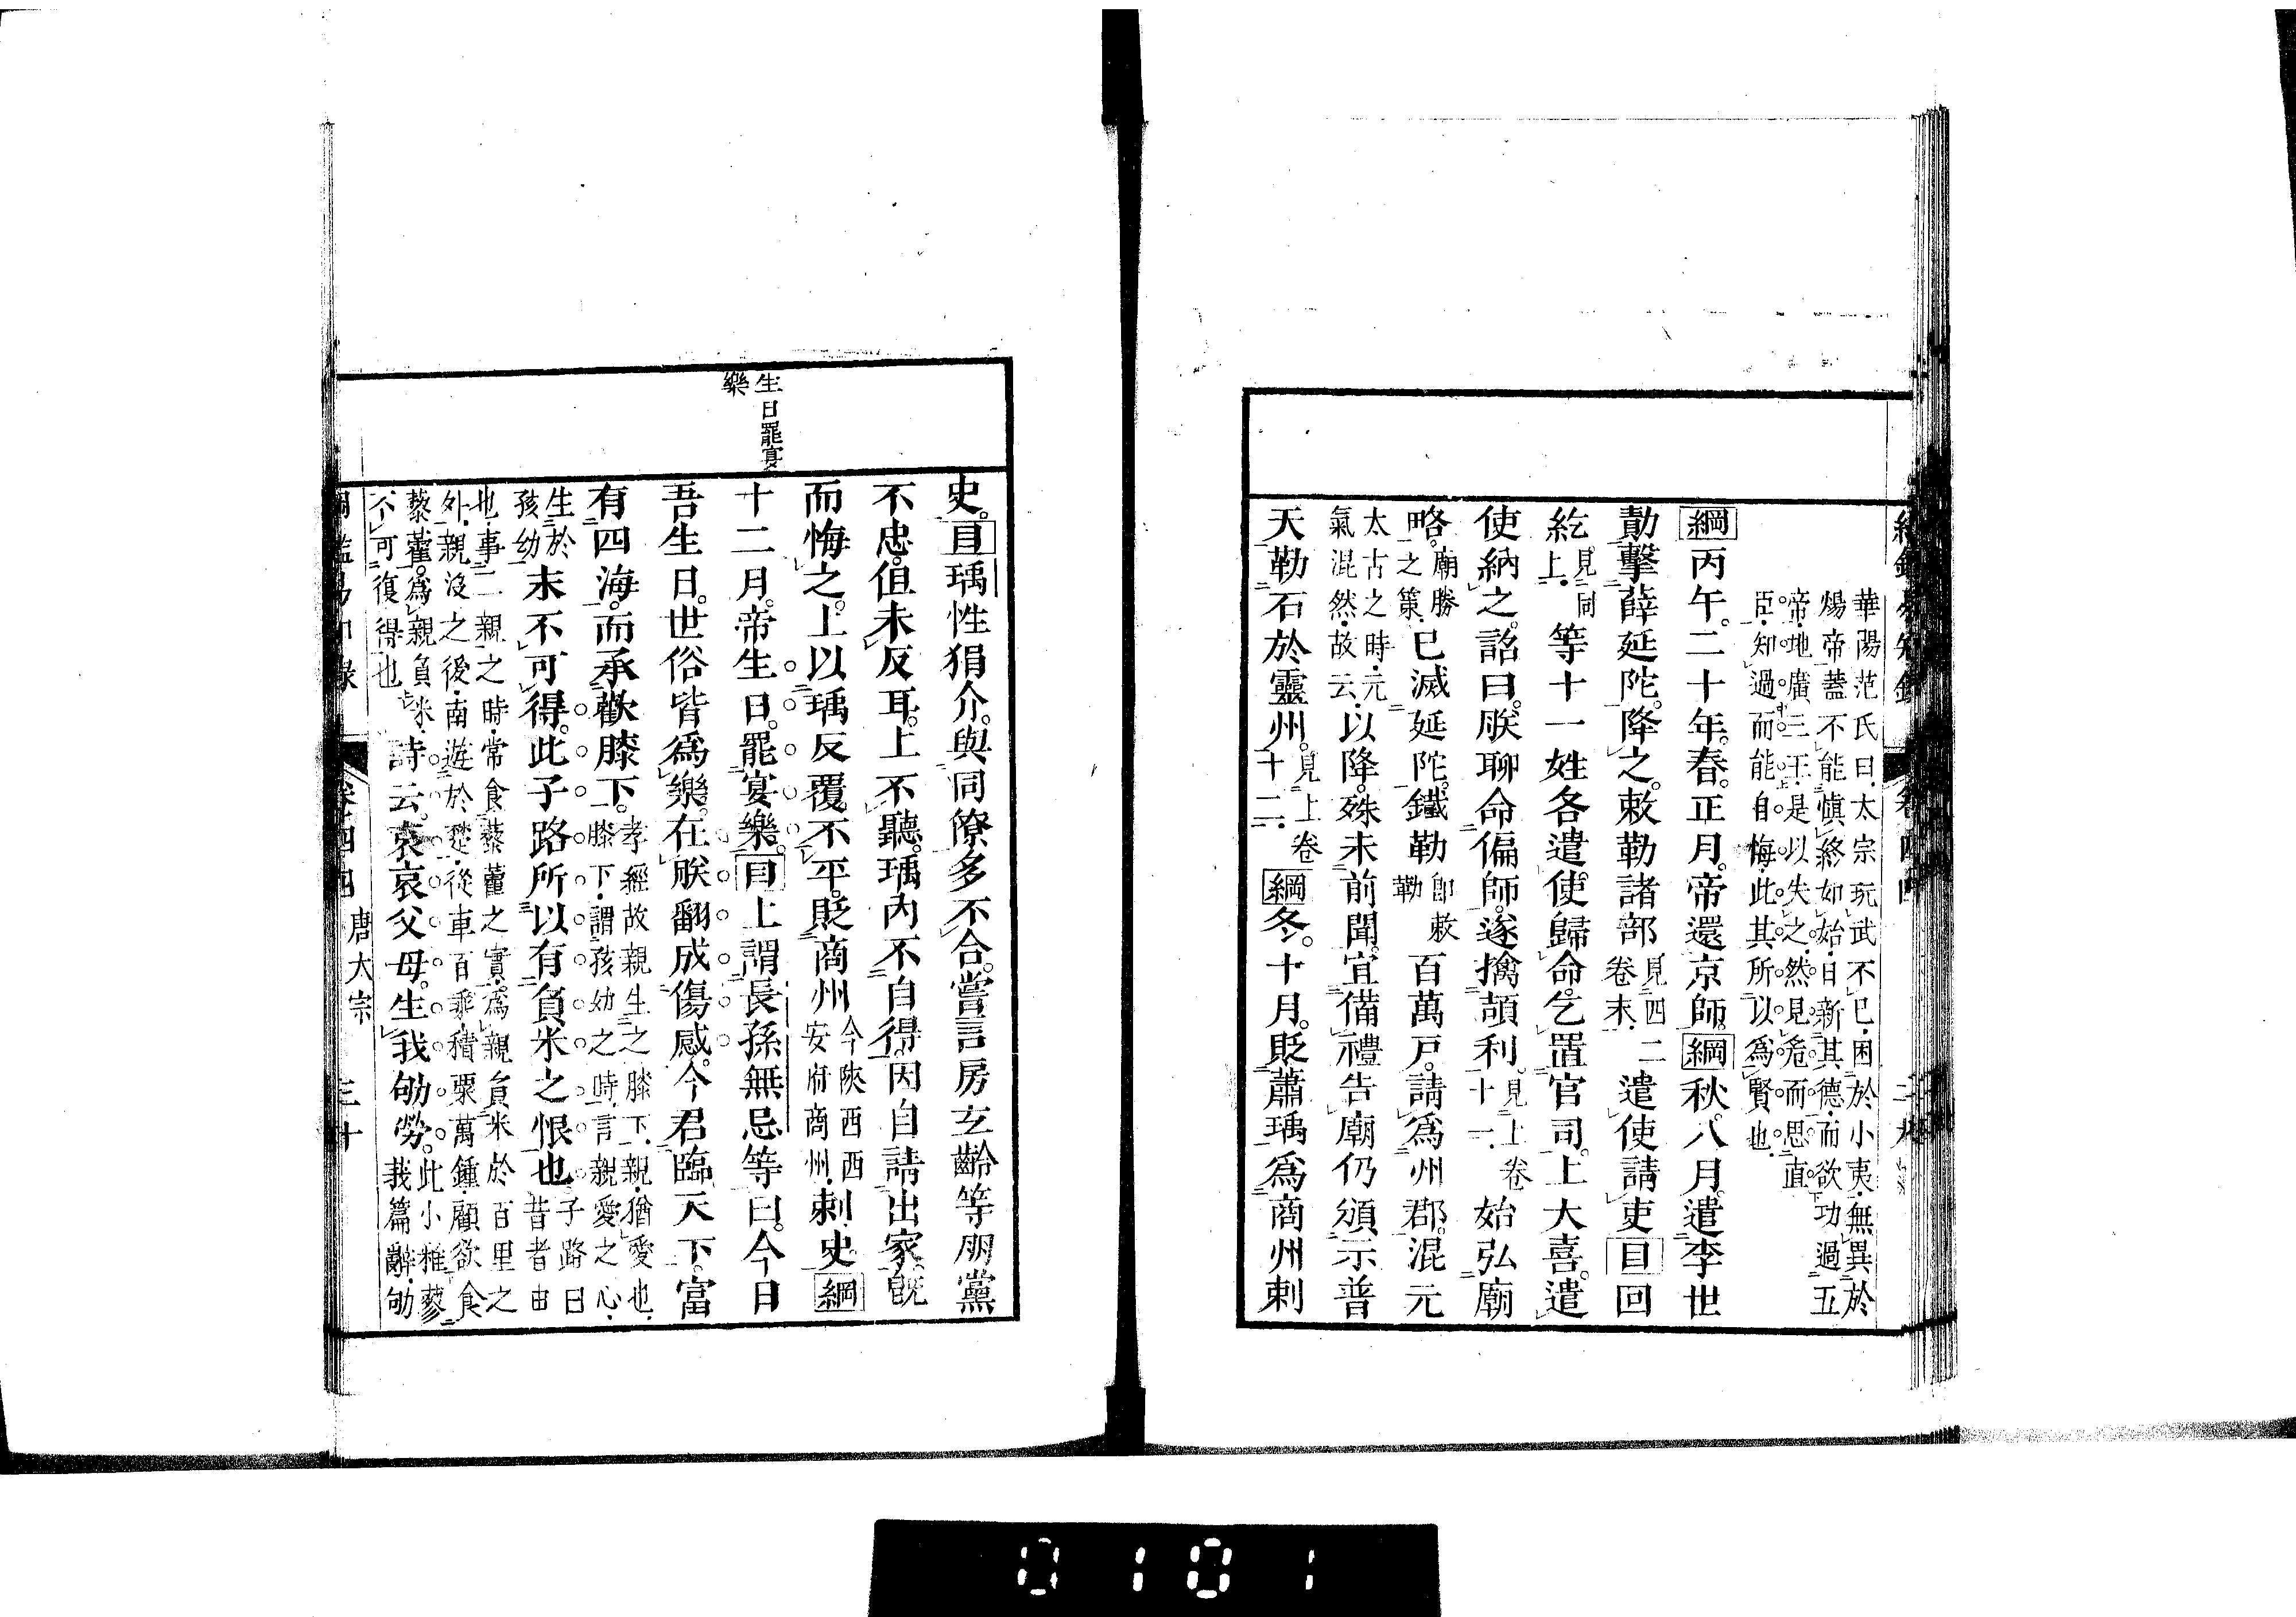 華陽范氏曰太宗玩武不已困於小夷無異於
煬帝蓋不能愼終如始日新其德而欲功過五
帝地廣三王是以失之然見危而思直
臣知過而能自悔此其所以爲賢也
綱丙午二十年春正月帝還京師綱秋八月遣李世
勣擊薛延陀降之敕勒諸部見四二卷末遣使請吏目回
紇見同上等十一姓各遣使歸命乞置官司上大喜遣
使納之詔曰朕聊命偏師遂擒頡利見上卷十一始弘廟
略廟勝之策已滅延陀鐵勒卽敕勒百萬戶請爲州郡混元
太古之時元氣混然故云以降殊未前聞宜備禮告廟仍頒示普
天勒石於靈州見上卷十二綱冬十月貶蕭瑀爲商州刺
生日罷宴
樂
史目瑀性狷介與同僚多不合嘗言房玄齡等朋黨
不忠但未反耳上不聽瑀內不自得因自請出家旣
而悔之上以瑀反覆不平貶商州今陝西西安府商州刺史綱
十二月帝生日罷宴樂目上謂長孫無忌等曰今日
吾生日世俗皆爲樂在朕翻成傷感今君臨天下富
有四海而承歡膝下孝經故親生之膝下親猶愛也膝下謂孩幼之時言親愛之心
生於孩幼末不可得此子路所以有負米之恨也子路曰昔者由
也事二親之時常食藜藿之實爲親負米於百里之
外親沒之後南遊於楚從車百乘積粟萬鍾願欲食
藜藿爲親負米不可復得也詩云哀哀父母生我劬勞此小雅蓼莪篇辭劬
卷十四四 唐太宗 三十